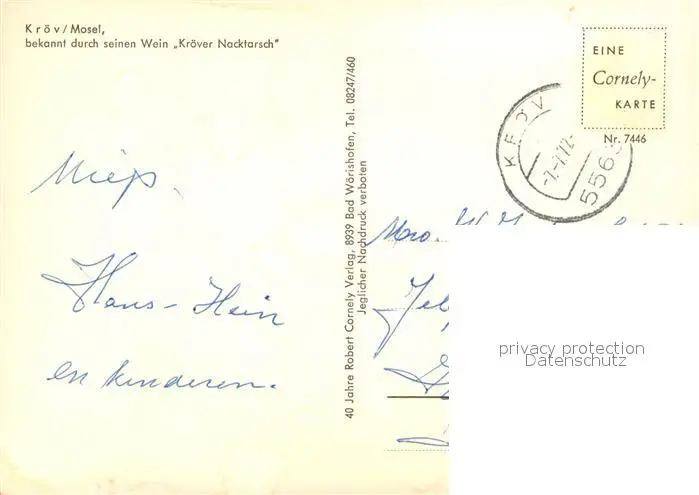 Kröv/Mosel,
bekannt durch seinen Wein „Kröver Nacktarsch"
EINE
Cornely-
KARTE
Nr. 7446
KRÖV
5563
Hans-Hein
en kinderen.
40 Jahre Robert Cornely Verlag, 8939 Bad Wörishofen, Tel. 08247/460
Jeglicher Nachdruck verboten
privacy protection
Datenschutz